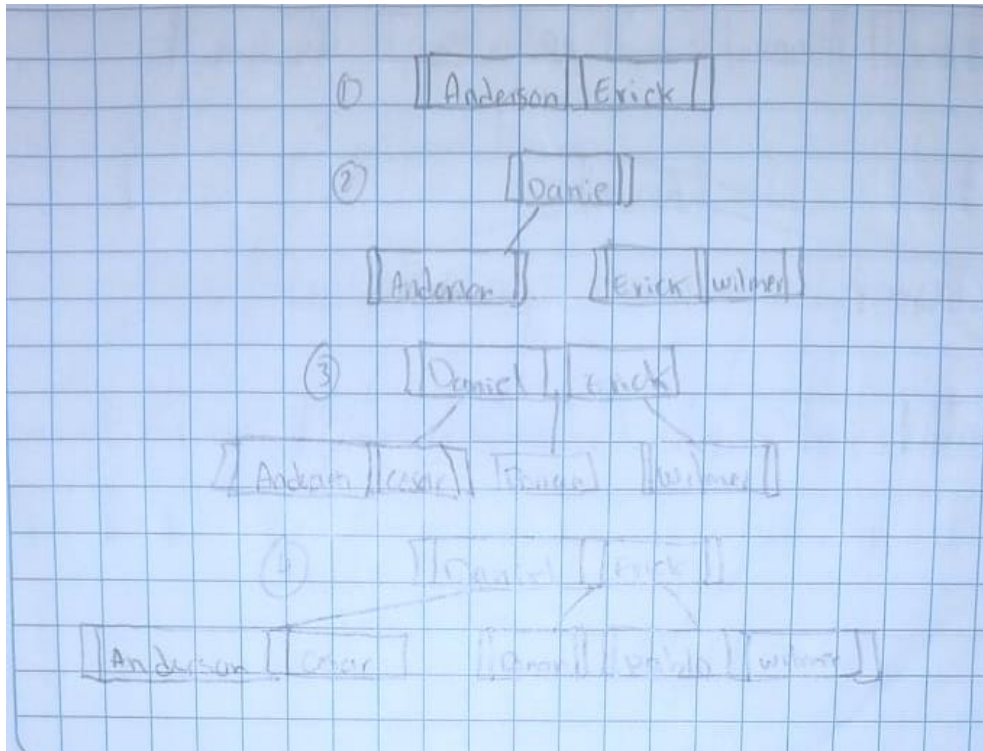 ① Anderson Erick
② Danie
Anderson Erick wilmer
③ Daniel Erick
Anderson cesar wilmer
④ Daniel Erick
Anderson cesar Pablo wilmer